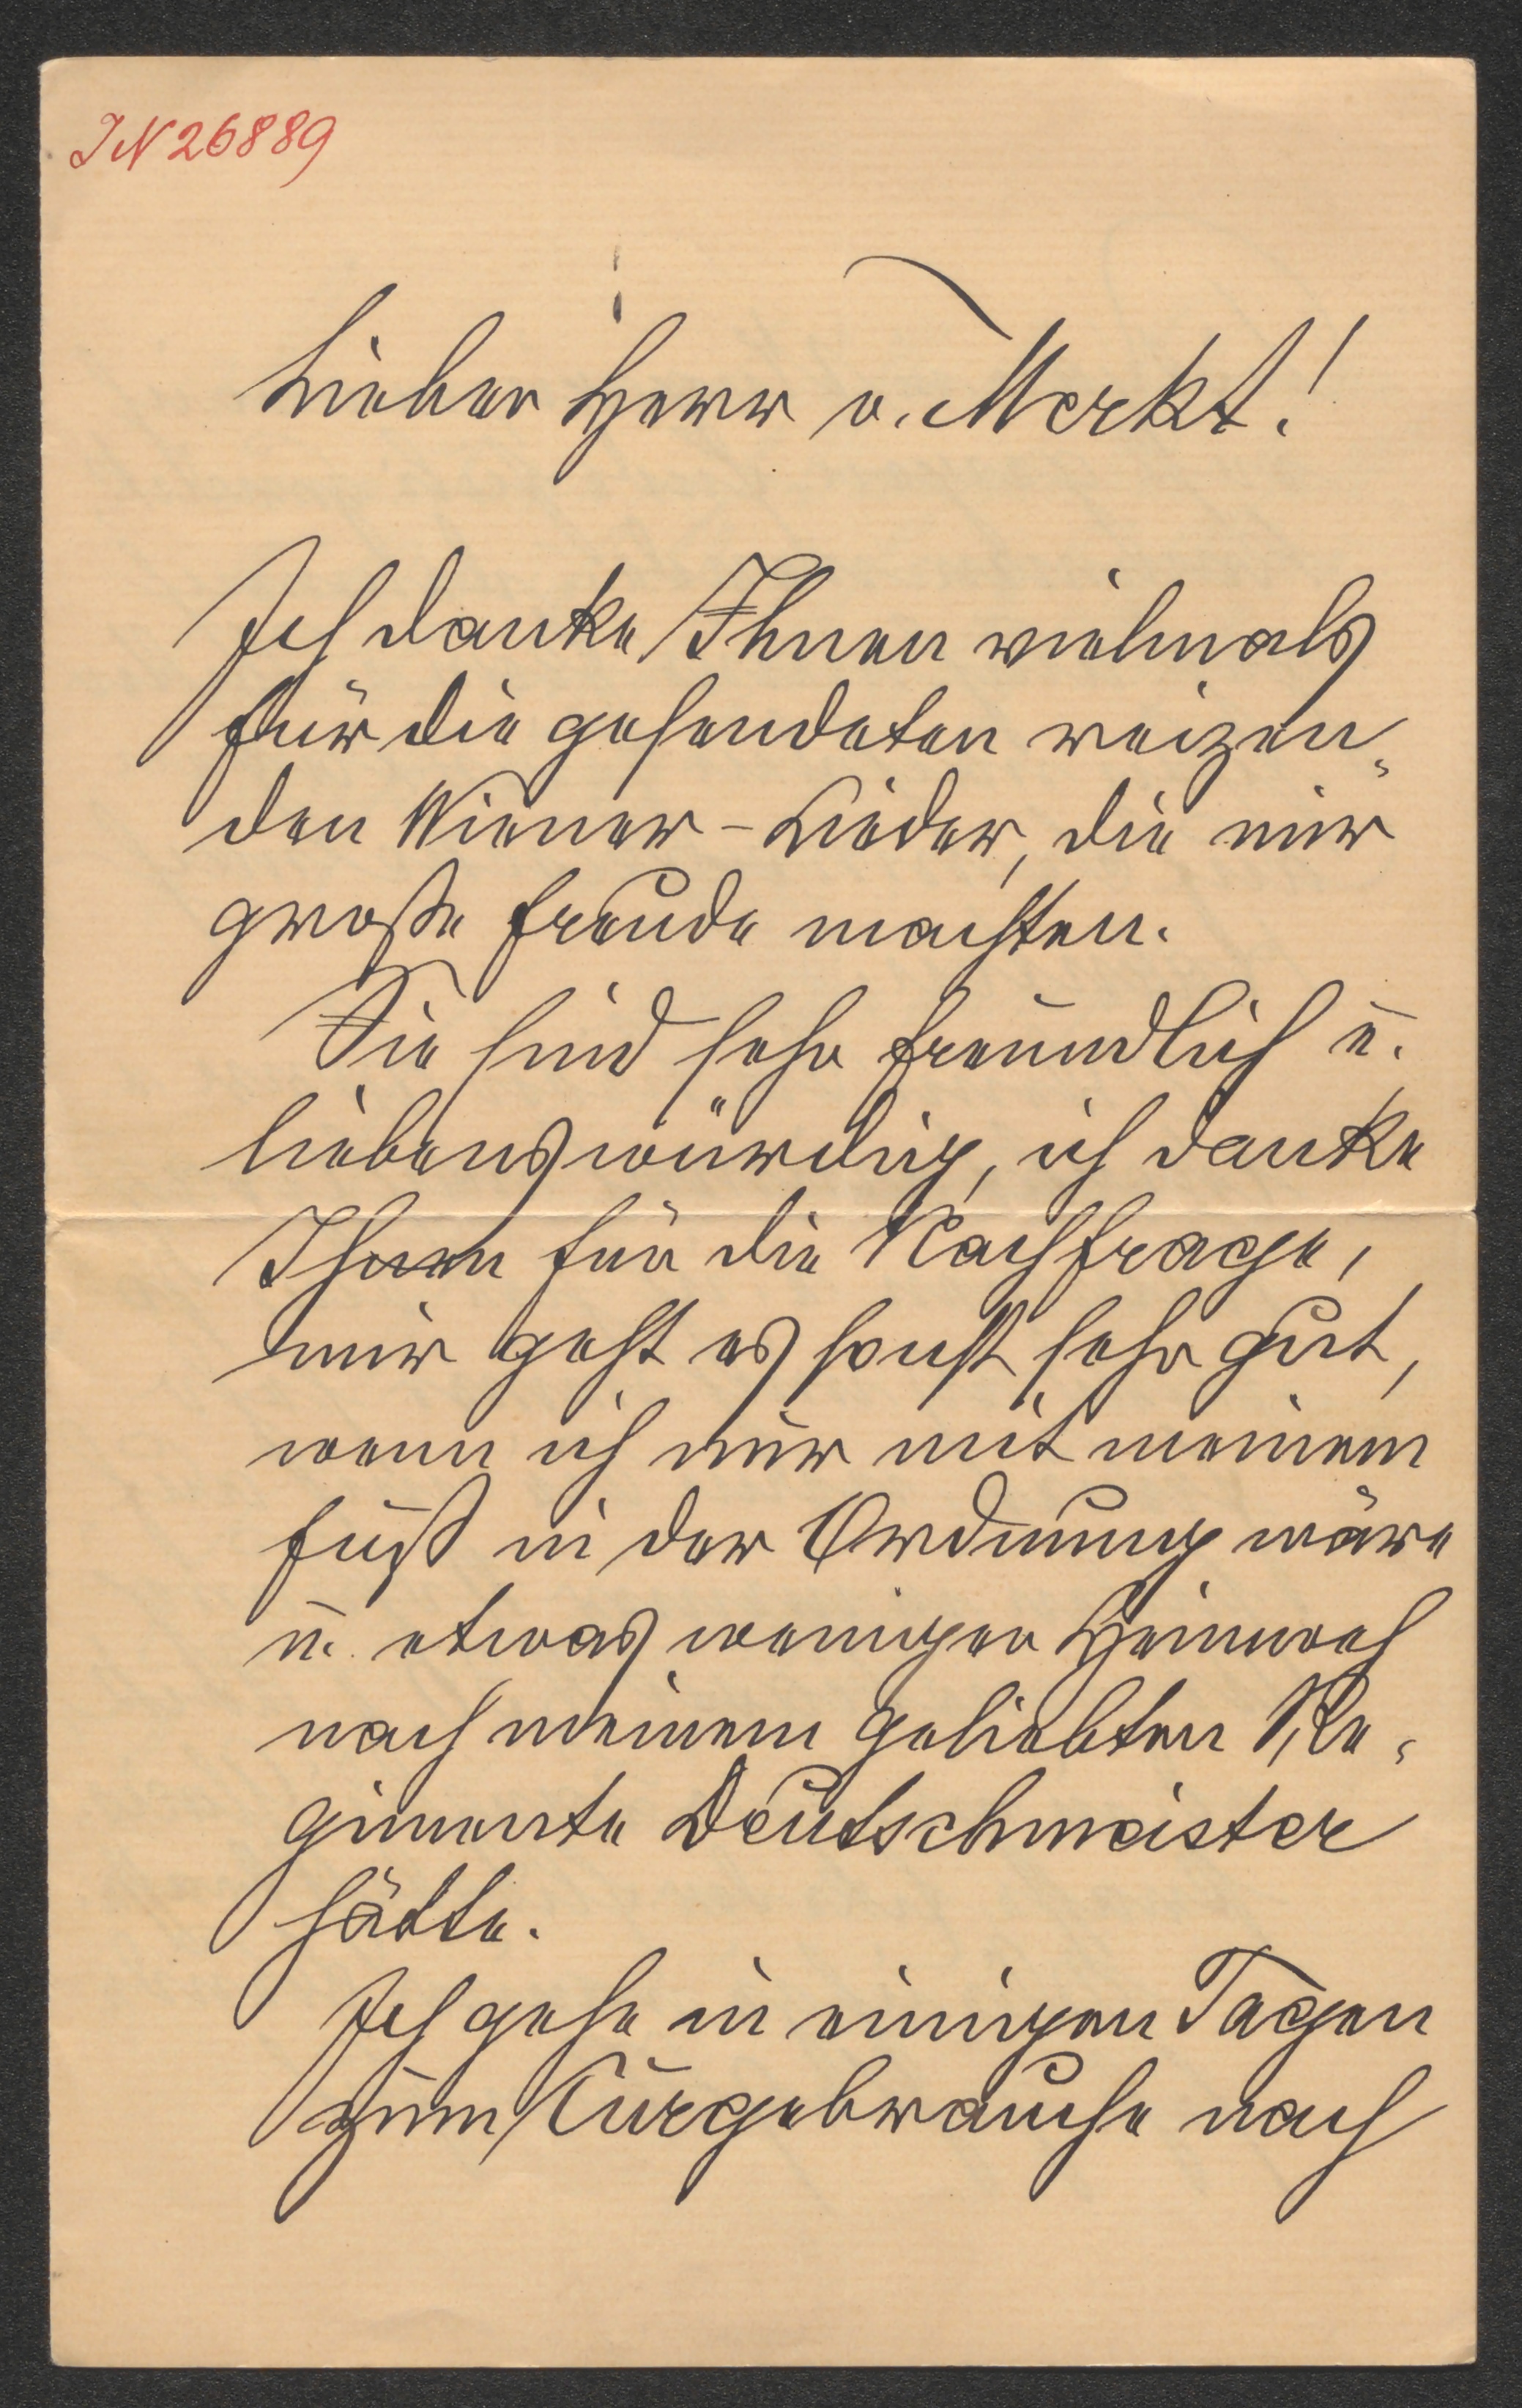 IN 26889
Lieber Herr v. Merkt!
Ich danke Ihnen vielmals
für die gesendeten reizen-
den Wiener-Lieder, die mir
große Freude machten.
Sie sind sehr freundlich u.
liebenswürdig, ich danke
Ihnen für die Nachfrage,
mir geht es sonst sehr gut,
wenn ich nur mit meinem
Fuß in der Ordnung wäre
u. etwas weniger Heimweh
nach meinem geliebten Re-
gimente Deutschmeister
hätte.
Ich gehe in einigen Tagen
zum Curgebrauche nach